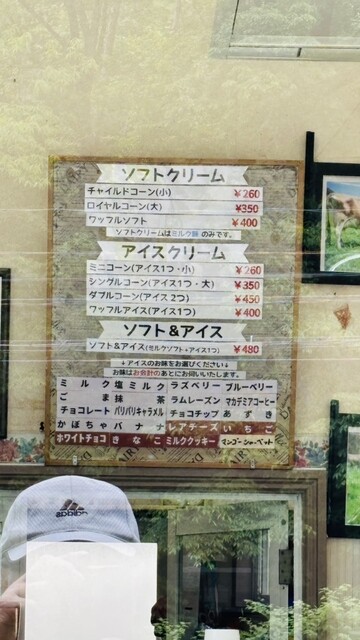 ソフトクリーム
チャイルドコーン(小) ¥260
ロイヤルコーン(大) ¥350
ワッフルソフト ¥400
ソフトクリームはミルク味のみです。
アイスクリーム
ミニコーン(アイス1つ・小) ¥260
シングルコーン(アイス1つ・大) ¥350
ダブルコーン(アイス2つ) ¥450
ワッフルアイス(アイス1つ) ¥400
ソフト&アイス
ソフト&アイス(ミルクソフト+アイス1つ) ¥480
↓アイスのお味をお選びください↓
お味はお会計のあとにお伺いいたします。
ミルク 塩ミルク ラズベリー ブルーベリー
ごま 抹茶 ラムレーズン マカデミアコーヒー
チョコレート パリパリキャラメル チョコチップ あずき
かぼちゃ バナナ レアチーズ いちご
ホワイトチョコ きなこ ミルククッキー マンゴーシャーベット
adidas